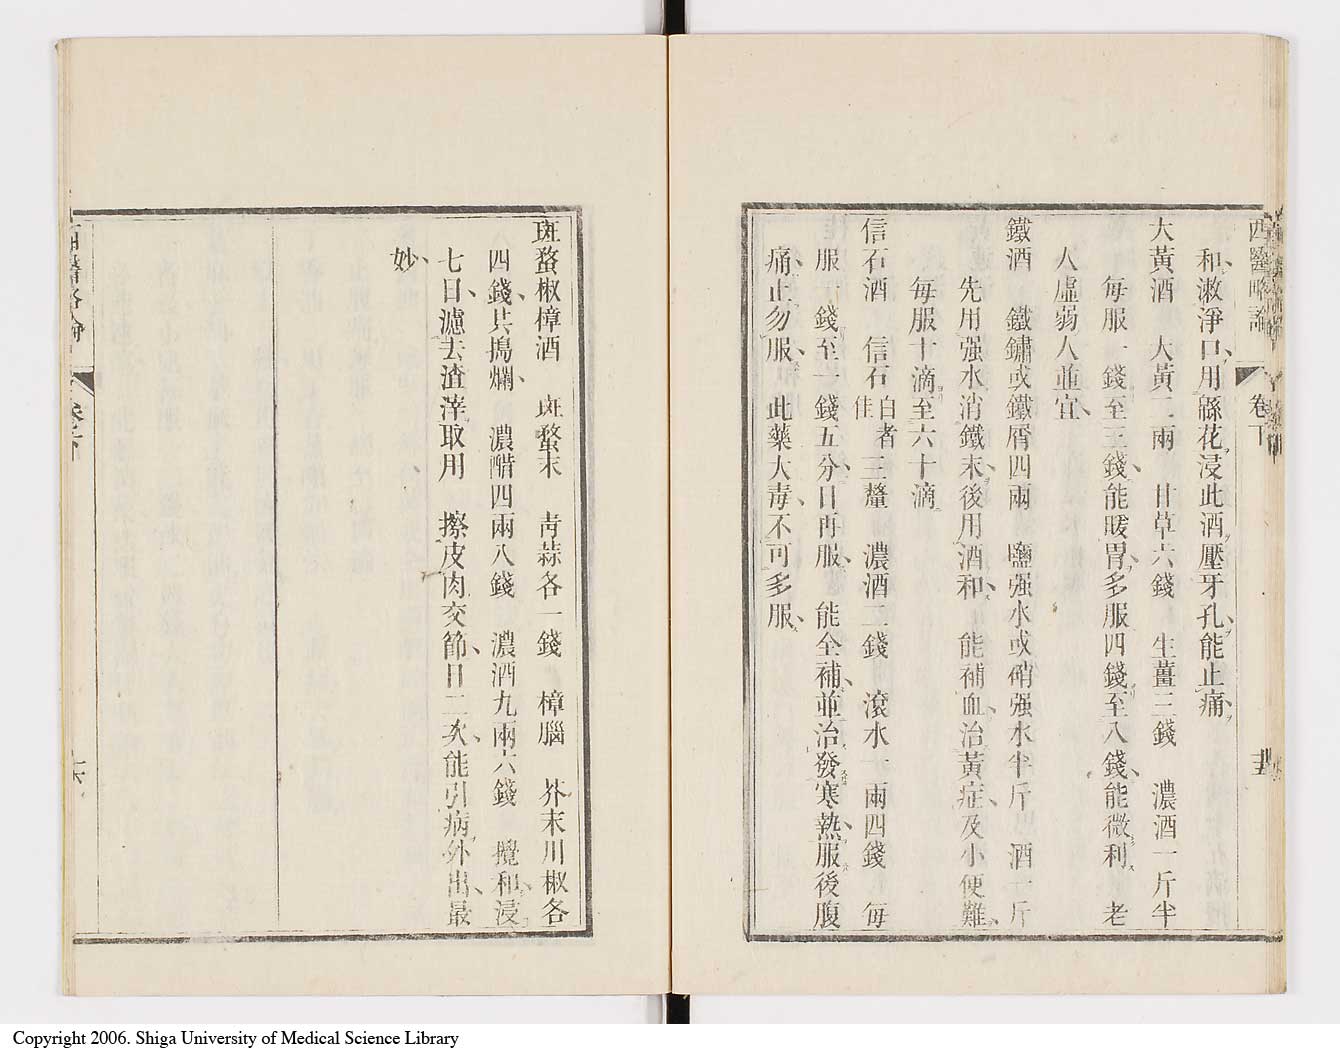 西醫略論 卷下
和漱淨口、用緜花浸此酒壓牙孔、能止痛、
大黃酒 大黃二兩 甘草六錢 生薑三錢 濃酒一斤半
每服一錢至三錢、能暖胃、多服四錢至八錢、能微利 老
人虛弱人並宜、
鐵酒 鐵鏽或鐵屑四兩 鹽强水或硝强水半斤 酒一斤
先用强水消鐵末、後用酒和、能補血、治黃症、及小便難、
每服十滴至六十滴
信石酒 信石白者佳三釐 濃酒二錢 滾水一兩四錢 每
服一錢至一錢五分、日再服、能全補、並治發寒熱、服後腹
痛、止勿服、此藥大毒、不可多服、
斑蝥椒樟酒 斑蝥末 靑蒜各一錢 樟腦 芥末川椒各
四錢、共搗爛、濃醋四兩八錢 濃酒九兩六錢 攪和、浸
七日、濾去渣滓取用 擦皮肉交節、日二次、能引病外出、最
妙、
西醫略論 卷下